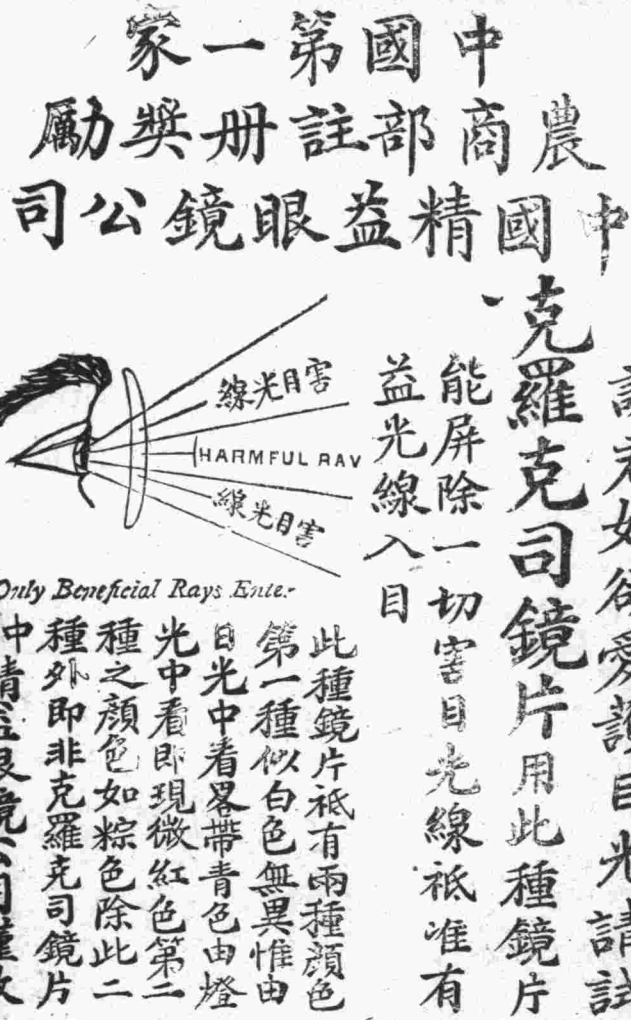 中國第一家
農商部註册獎勵
中國精益眼鏡公司
愛護目光請試
克羅克司鏡片用此種鏡片
能屏除一切害目光線祗准有
益光線入目
害目光線
HARMFUL RAY
害目光線
Only Beneficial Rays Enter
此種鏡片祗有兩種顏色
第一種似白色無異惟由
日光中看畧帶青色由燈
光中看即現微紅色第二
種之顏色如粽色除此二
種外即非克羅克司鏡片
中精益眼鏡公司謹啟